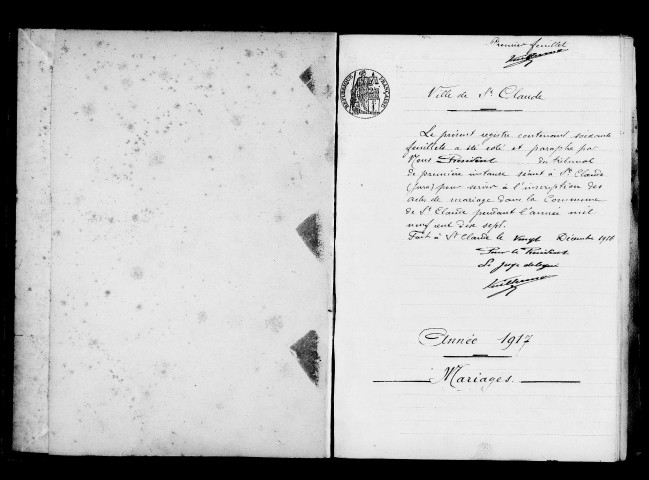 Premier feuillet
RÉPUBLIQUE FRANÇAISE
Ville de St Claude
Le présent registre contenant soixante
feuillets a été coté et paraphé par
Nous Président du tribunal
de première instance séant à St Claude
(Jura) pour servir à l'inscription des
actes de mariage dans la Commune
de St Claude pendant l'année mil
neuf cent dix sept.
Fait à St Claude le vingt Décembre 1916
Pour le Président
Le Juge délégué
Année 1917
Mariages.